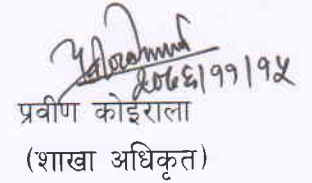 २०७६/११/१५
प्रवीण कोइराला
(शाखा अधिकृत)